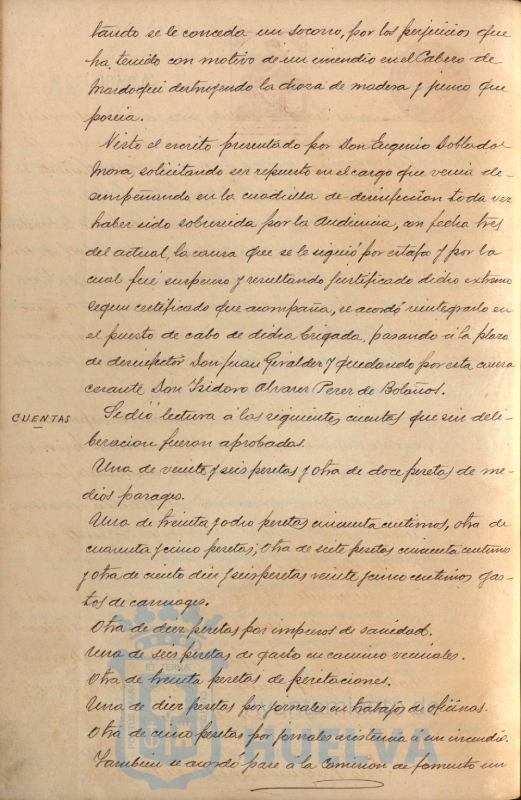 tando se le conceda un socorro, por los perjuicios que
ha tenido con motivo de un incendio en el Cabezo de
Mardoqui destruyendo la choza de madera y junco que
poseia.
Visto el escrito presentado por Don Eugenio Doblado
Mora, solicitando ser repuesto en el cargo que venia de-
sempeñando en la cuadrilla de desinfeccion toda vez
haber sido sobreseida por la Audiencia, con fecha tres
del actual, la causa que se le siguió por estafa y por la
cual fué suspenso y resultando justificado dicho extremo
segun certificado que acompaña, se acordó reintegrarlo en
el puesto de cabo de dicha brigada, pasando á la plaza
de desinfector Don Juan Giralder y quedando por esta causa
cesante Don Isidoro Alvarez Perez de Bolaños.
CUENTAS
Se dió lectura á las siguientes cuentas que sin deli-
beracion fueron aprobadas.
Una de veinte y seis pesetas y otra de doce pesetas de me-
dios parages.
Una de treinta y ocho pesetas cincuenta centimos, otra de
cuarenta y cinco pesetas, otra de siete pesetas cincuenta centimos
y otra de ciento diez y seis pesetas veinte y cinco centimos gas-
tos de carruages.
Otra de diez pesetas por impresos de sanidad.
Una de seis pesetas de gasto en camino vecinales.
Otra de treinta pesetas de peritaciones.
Una de diez pesetas por jornales en trabajos de oficinas.
Otra de cinco pesetas por jornales asistencia á un incendio.
Tambien se acordó pase á la Comision de fomento un
HUELVA